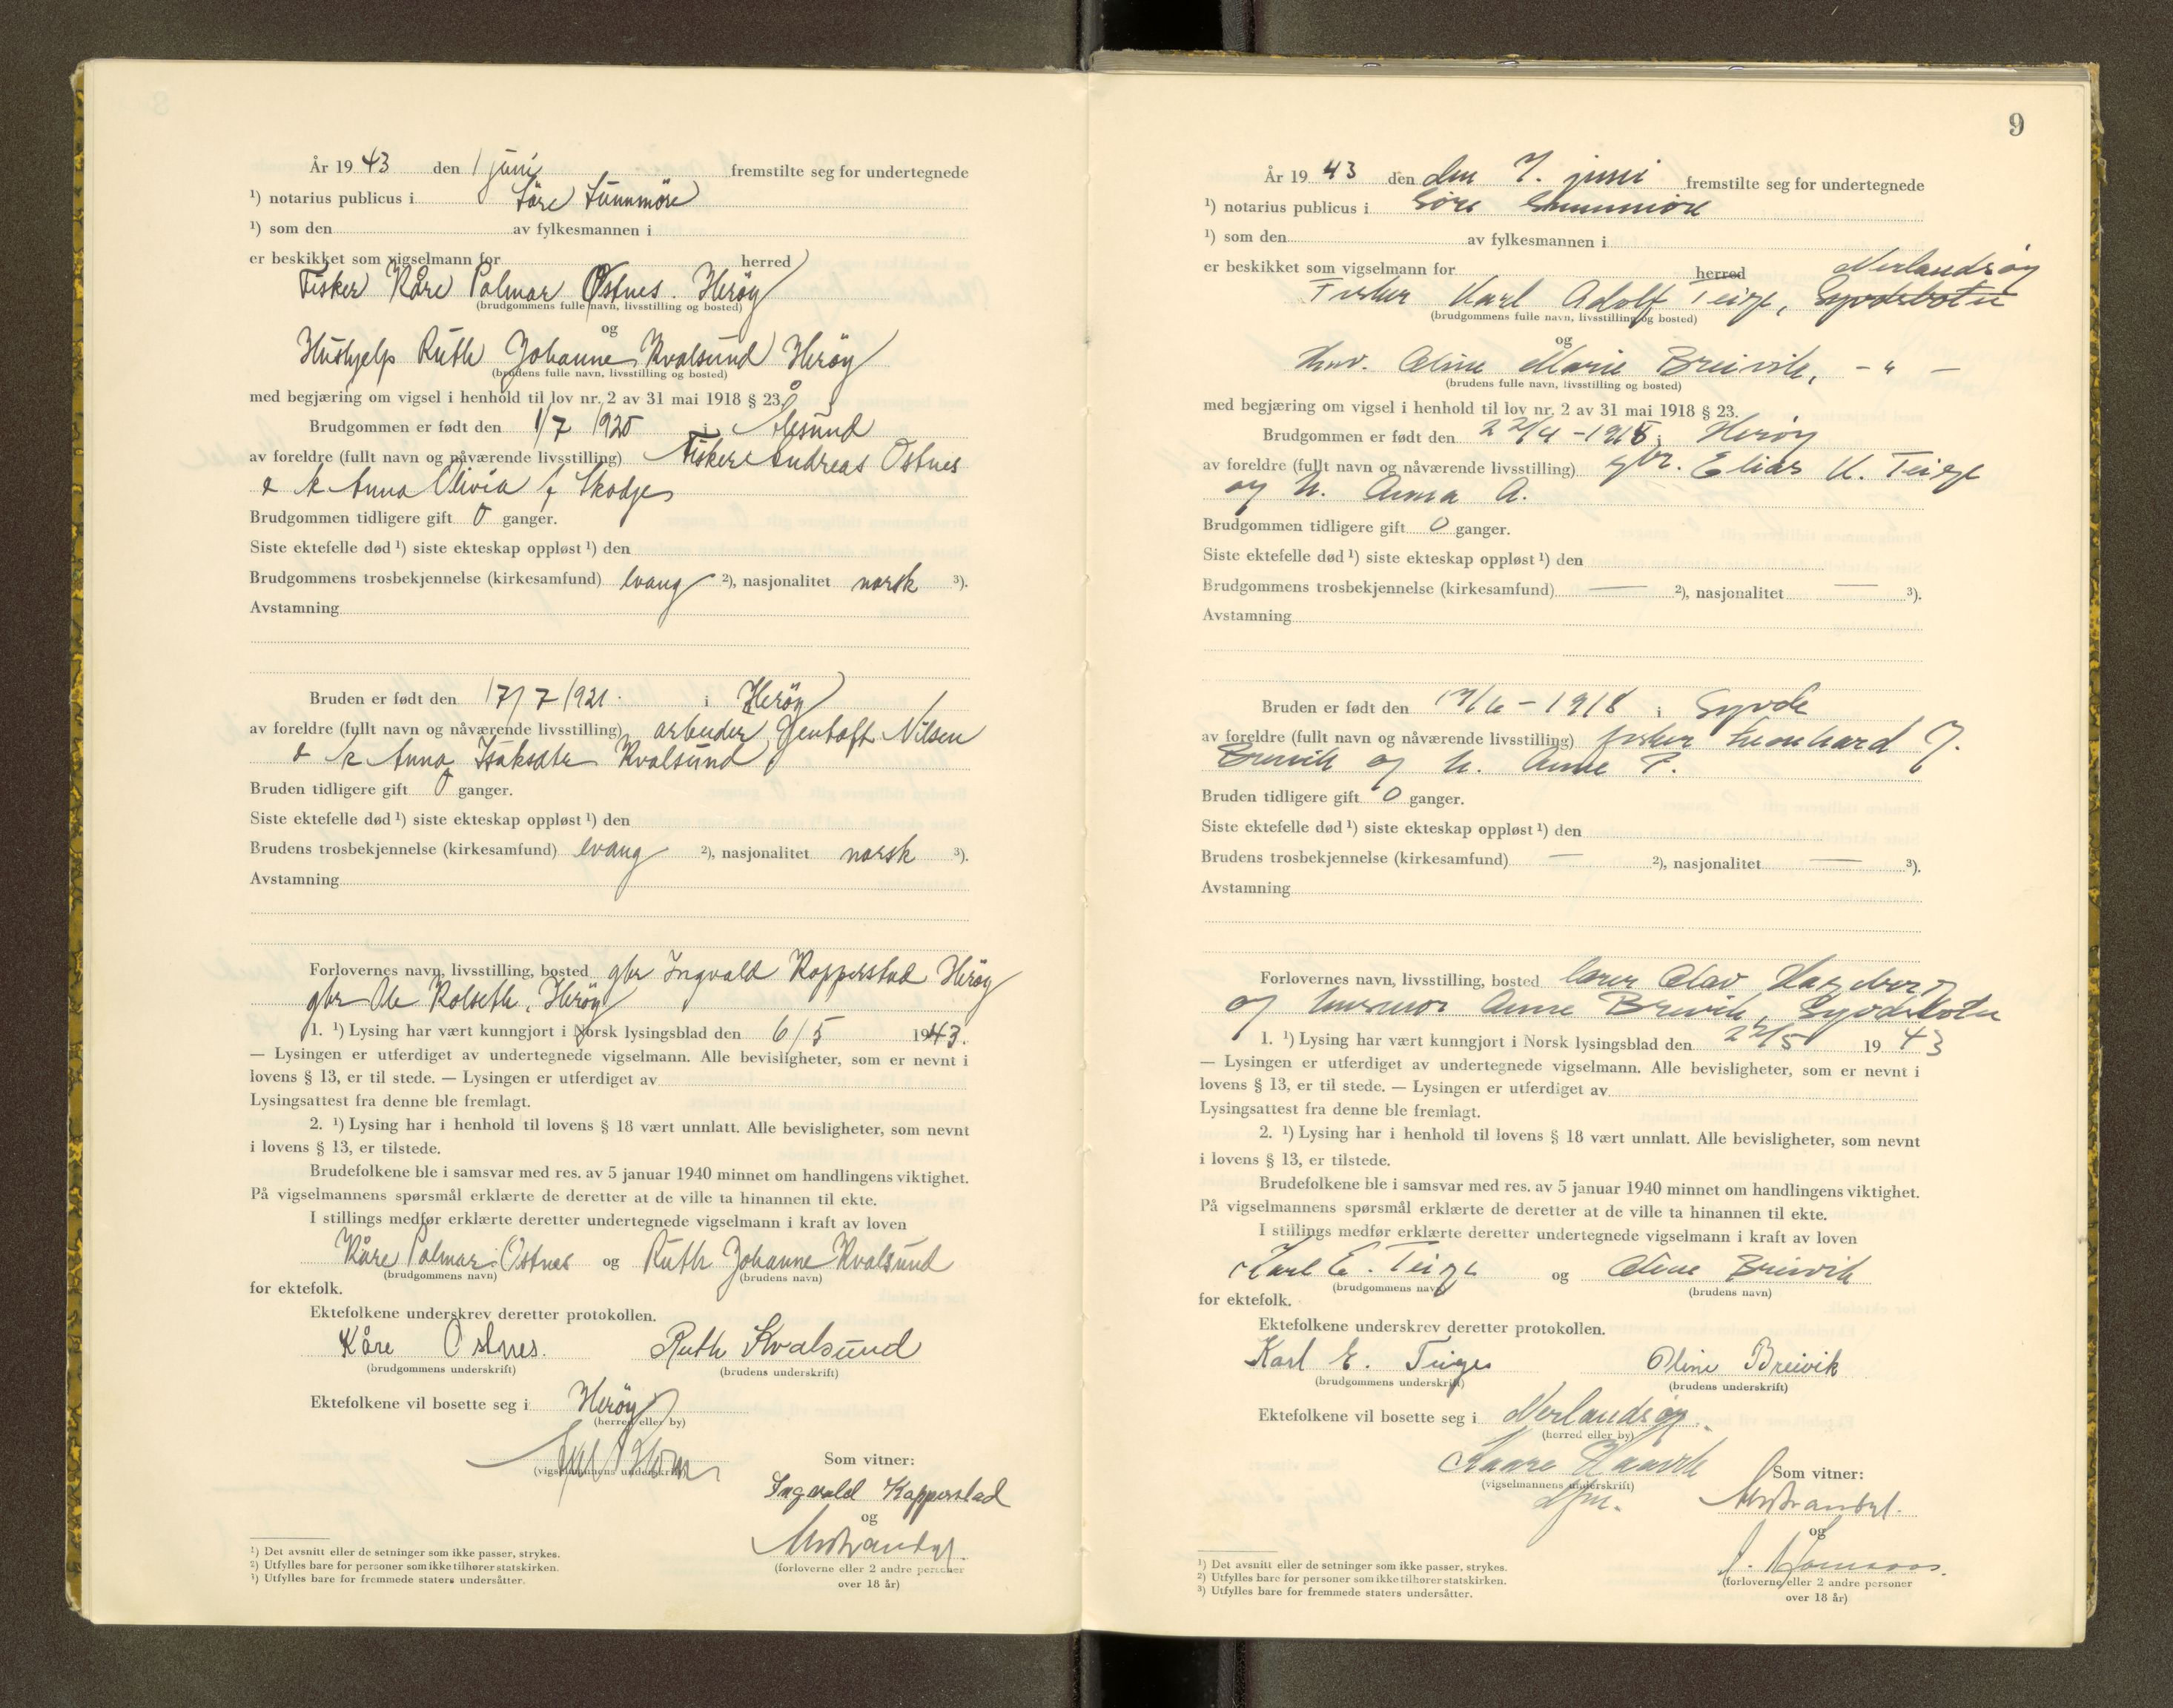 År 1943 den 1 juni fremstilte seg for undertegnede
¹) notarius publicus i Söre Sunnmöre
¹) som den av fylkesmannen i
er beskikket som vigselmann for herred
Fisker Kåre Palmar Østnes. Heröy
(brudgommens fulle navn, livsstilling og bosted)
og
Hushjelp Ruth Johanne Kvalsund Heröy
(brudens fulle navn, livsstilling og bosted)
med begjæring om vigsel i henhold til lov nr. 2 av 31 mai 1918 § 23.
Brudgommen er født den 1/7 1920 i Ålesund
av foreldre (fullt navn og nåværende livsstilling) Fisker Andreas Ostnes
& k Anna Olivia f Skodje
Brudgommen tidligere gift 0 ganger.
Siste ektefelle død ¹) siste ekteskap oppløst ¹) den
Brudgommens trosbekjennelse (kirkesamfund) evang ²), nasjonalitet norsk ³).
Avstamning
Bruden er født den 17/7 1921. i Heröy
av foreldre (fullt navn og nåværende livsstilling) arbeider Gentoft Nilsen
& k Anna Isaksdtr Kvalsund
Bruden tidligere gift 0 ganger.
Siste ektefelle død ¹) siste ekteskap oppløst ¹) den
Brudens trosbekjennelse (kirkesamfund) evang ²), nasjonalitet norsk ³).
Avstamning
Forlovernes navn, livsstilling, bosted gbr Ingvald Kopperstad Heröy
gbr Ole Kolseth, Heröy
1. ¹) Lysing har vært kunngjort i Norsk lysingsblad den 6/5 1943.
— Lysingen er utferdiget av undertegnede vigselmann. Alle bevisligheter, som er nevnt i
lovens § 13, er til stede. — Lysingen er utferdiget av
Lysingsattest fra denne ble fremlagt.
2. ¹) Lysing har i henhold til lovens § 18 vært unnlatt. Alle bevisligheter, som nevnt
i lovens § 13, er tilstede.
Brudefolkene ble i samsvar med res. av 5 januar 1940 minnet om handlingens viktighet.
På vigselmannens spørsmål erklærte de deretter at de ville ta hinannen til ekte.
I stillings medfør erklærte deretter undertegnede vigselmann i kraft av loven
Kåre Palmar Ostnes og Ruth Johanne Kvalsund
(brudgommens navn) (brudens navn)
for ektefolk.
Ektefolkene underskrev deretter protokollen.
Kåre Ostnes. Ruth Kvalsund
(brudgommens underskrift) (brudens underskrift)
Ektefolkene vil bosette seg i Heröy
(herred eller by)
(vigselmannens underskrift)
Som vitner:
Ingvald Kopperstad
og
(forloverne eller 2 andre personer
over 18 år)
¹) Det avsnitt eller de setninger som ikke passer, strykes.
²) Utfylles bare for personer som ikke tilhører statskirken.
³) Utfylles bare for fremmede staters undersåtter.
9
År 1943 den den 7. juni fremstilte seg for undertegnede
¹) notarius publicus i Söre Sunnmöre
¹) som den av fylkesmannen i
er beskikket som vigselmann for herred Nerlandsöy
Fisker Karl Adolf Teige, Syvdsbotn
(brudgommens fulle navn, livsstilling og bosted)
og
Oline Marie Breivik, - " -
(brudens fulle navn, livsstilling og bosted)
med begjæring om vigsel i henhold til lov nr. 2 av 31 mai 1918 § 23.
Brudgommen er født den 22/4 - 1918 i Heröy
av foreldre (fullt navn og nåværende livsstilling) gbr. Elias K. Teige
og h. Anna A.
Brudgommen tidligere gift 0 ganger.
Siste ektefelle død ¹) siste ekteskap oppløst ¹) den
Brudgommens trosbekjennelse (kirkesamfund) — ²), nasjonalitet — ³).
Avstamning
Bruden er født den 17/6 - 1918 i Syvde
av foreldre (fullt navn og nåværende livsstilling) fisker Leonhard J.
Breivik og h. Anne P.
Bruden tidligere gift 0 ganger.
Siste ektefelle død ¹) siste ekteskap oppløst ¹) den
Brudens trosbekjennelse (kirkesamfund) — ²), nasjonalitet — ³).
Avstamning
Forlovernes navn, livsstilling, bosted lærer Olav
og husmor Anne Breivik, Syvdsbotn
1. ¹) Lysing har vært kunngjort i Norsk lysingsblad den 22/5 1943
— Lysingen er utferdiget av undertegnede vigselmann. Alle bevisligheter, som er nevnt i
lovens § 13, er til stede. — Lysingen er utferdiget av
Lysingsattest fra denne ble fremlagt.
2. ¹) Lysing har i henhold til lovens § 18 vært unnlatt. Alle bevisligheter, som nevnt
i lovens § 13, er tilstede.
Brudefolkene ble i samsvar med res. av 5 januar 1940 minnet om handlingens viktighet.
På vigselmannens spørsmål erklærte de deretter at de ville ta hinannen til ekte.
I stillings medfør erklærte deretter undertegnede vigselmann i kraft av loven
Karl E. Teige og Oline Breivik
(brudgommens navn) (brudens navn)
for ektefolk.
Ektefolkene underskrev deretter protokollen.
Karl E. Teige Oline Breivik
(brudgommens underskrift) (brudens underskrift)
Ektefolkene vil bosette seg i Nerlandsöy.
(herred eller by)
Kaare
(vigselmannens underskrift)
Som vitner:
og
(forloverne eller 2 andre personer
over 18 år)
¹) Det avsnitt eller de setninger som ikke passer, strykes.
²) Utfylles bare for personer som ikke tilhører statskirken.
³) Utfylles bare for fremmede staters undersåtter.